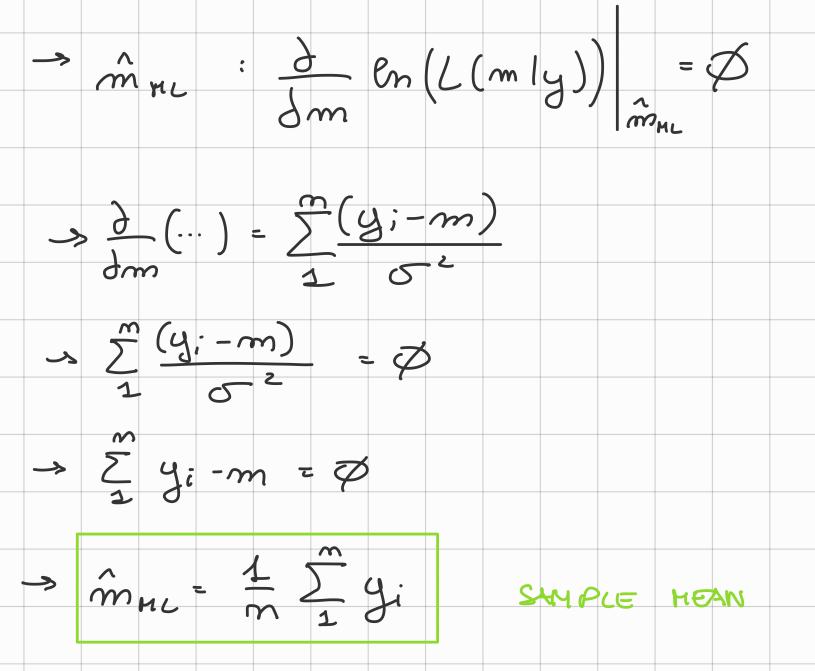 → m̂_ML : ∂/∂m ln(L(m|y))|_m̂_ML = ∅
→ ∂/∂m (...) = ∑_1^n (y_i - m)/σ²
→ ∑_1^n (y_i - m)/σ² = ∅
→ ∑_1^n y_i - m = ∅
→ m̂_ML = 1/n ∑_1^n y_i SAMPLE MEAN